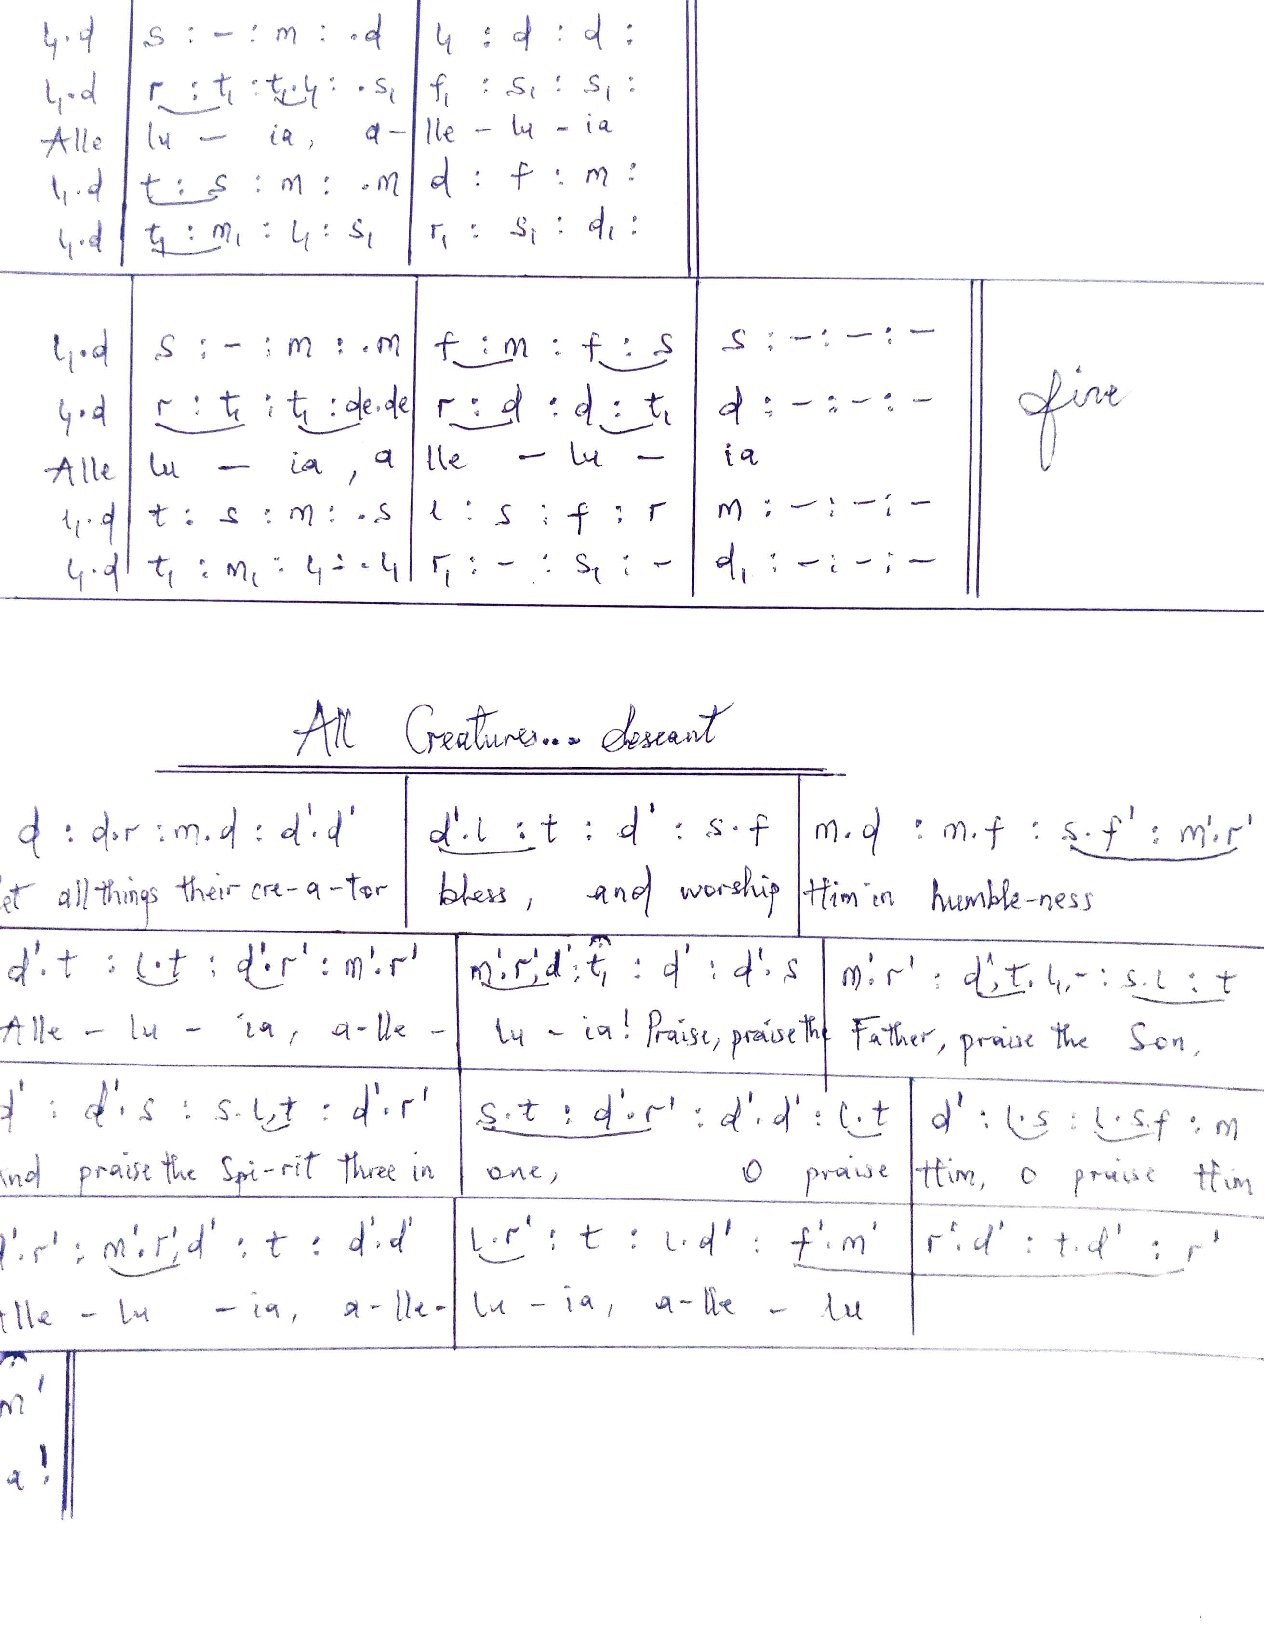 l₁.d | s : – : m : .d | l₁ : d : d : ||
l₁.d | r : t₁ : t₁.l₁ : .s₁ | f₁ : s₁ : s₁ :
Alle | lu – ia, a- | lle – lu – ia
l₁.d | t : s : m : .m | d : f : m :
l₁.d | t₁ : m₁ : l₁ : s₁ | r₁ : s₁ : d₁ :
l₁.d | s : – : m : .m | f : m : f : s | s : – : – : – ||
l₁.d | r : t₁ : t₁ : de.de | r : d : d : t₁ | d : – : – : – || fine
Alle | lu – ia, a | lle – lu – | ia
l₁.d | t : s : m : .s | l : s : f : r | m : – : – : –
l₁.d | t₁ : m₁ : l₁ : .l₁ | r₁ : – : s₁ : – | d₁ : – : – : –
All Creatures... descant
d : d.r : m.d : d'.d' | d'.l : t : d' : s.f | m.d : m.f : s.f' : m'.r'
et all things their cre-a-tor | bless, and worship | Him in humble-ness
d'.t : l.t : d'.r' : m'.r' | m'.r',d' : t₁ : d' : d'.s | m'.r' : d',t.l,- : s.l : t
Alle – lu – ia, a-lle – | lu – ia! Praise, praise the | Father, praise the Son,
d' : d'.s : s.l,t : d'.r' | s.t : d'.r' : d'.d' : l.t | d' : l.s : l.s,f : m
And praise the Spi-rit three in | one, O praise | Him, O praise Him
d'.r' : m'.r',d' : t : d'.d' | l.r' : t : l.d' : f'.m' | r'.d' : t.d' : r'
Alle – lu – ia, a-lle- | lu – ia, a-lle – lu
m' ||
a!